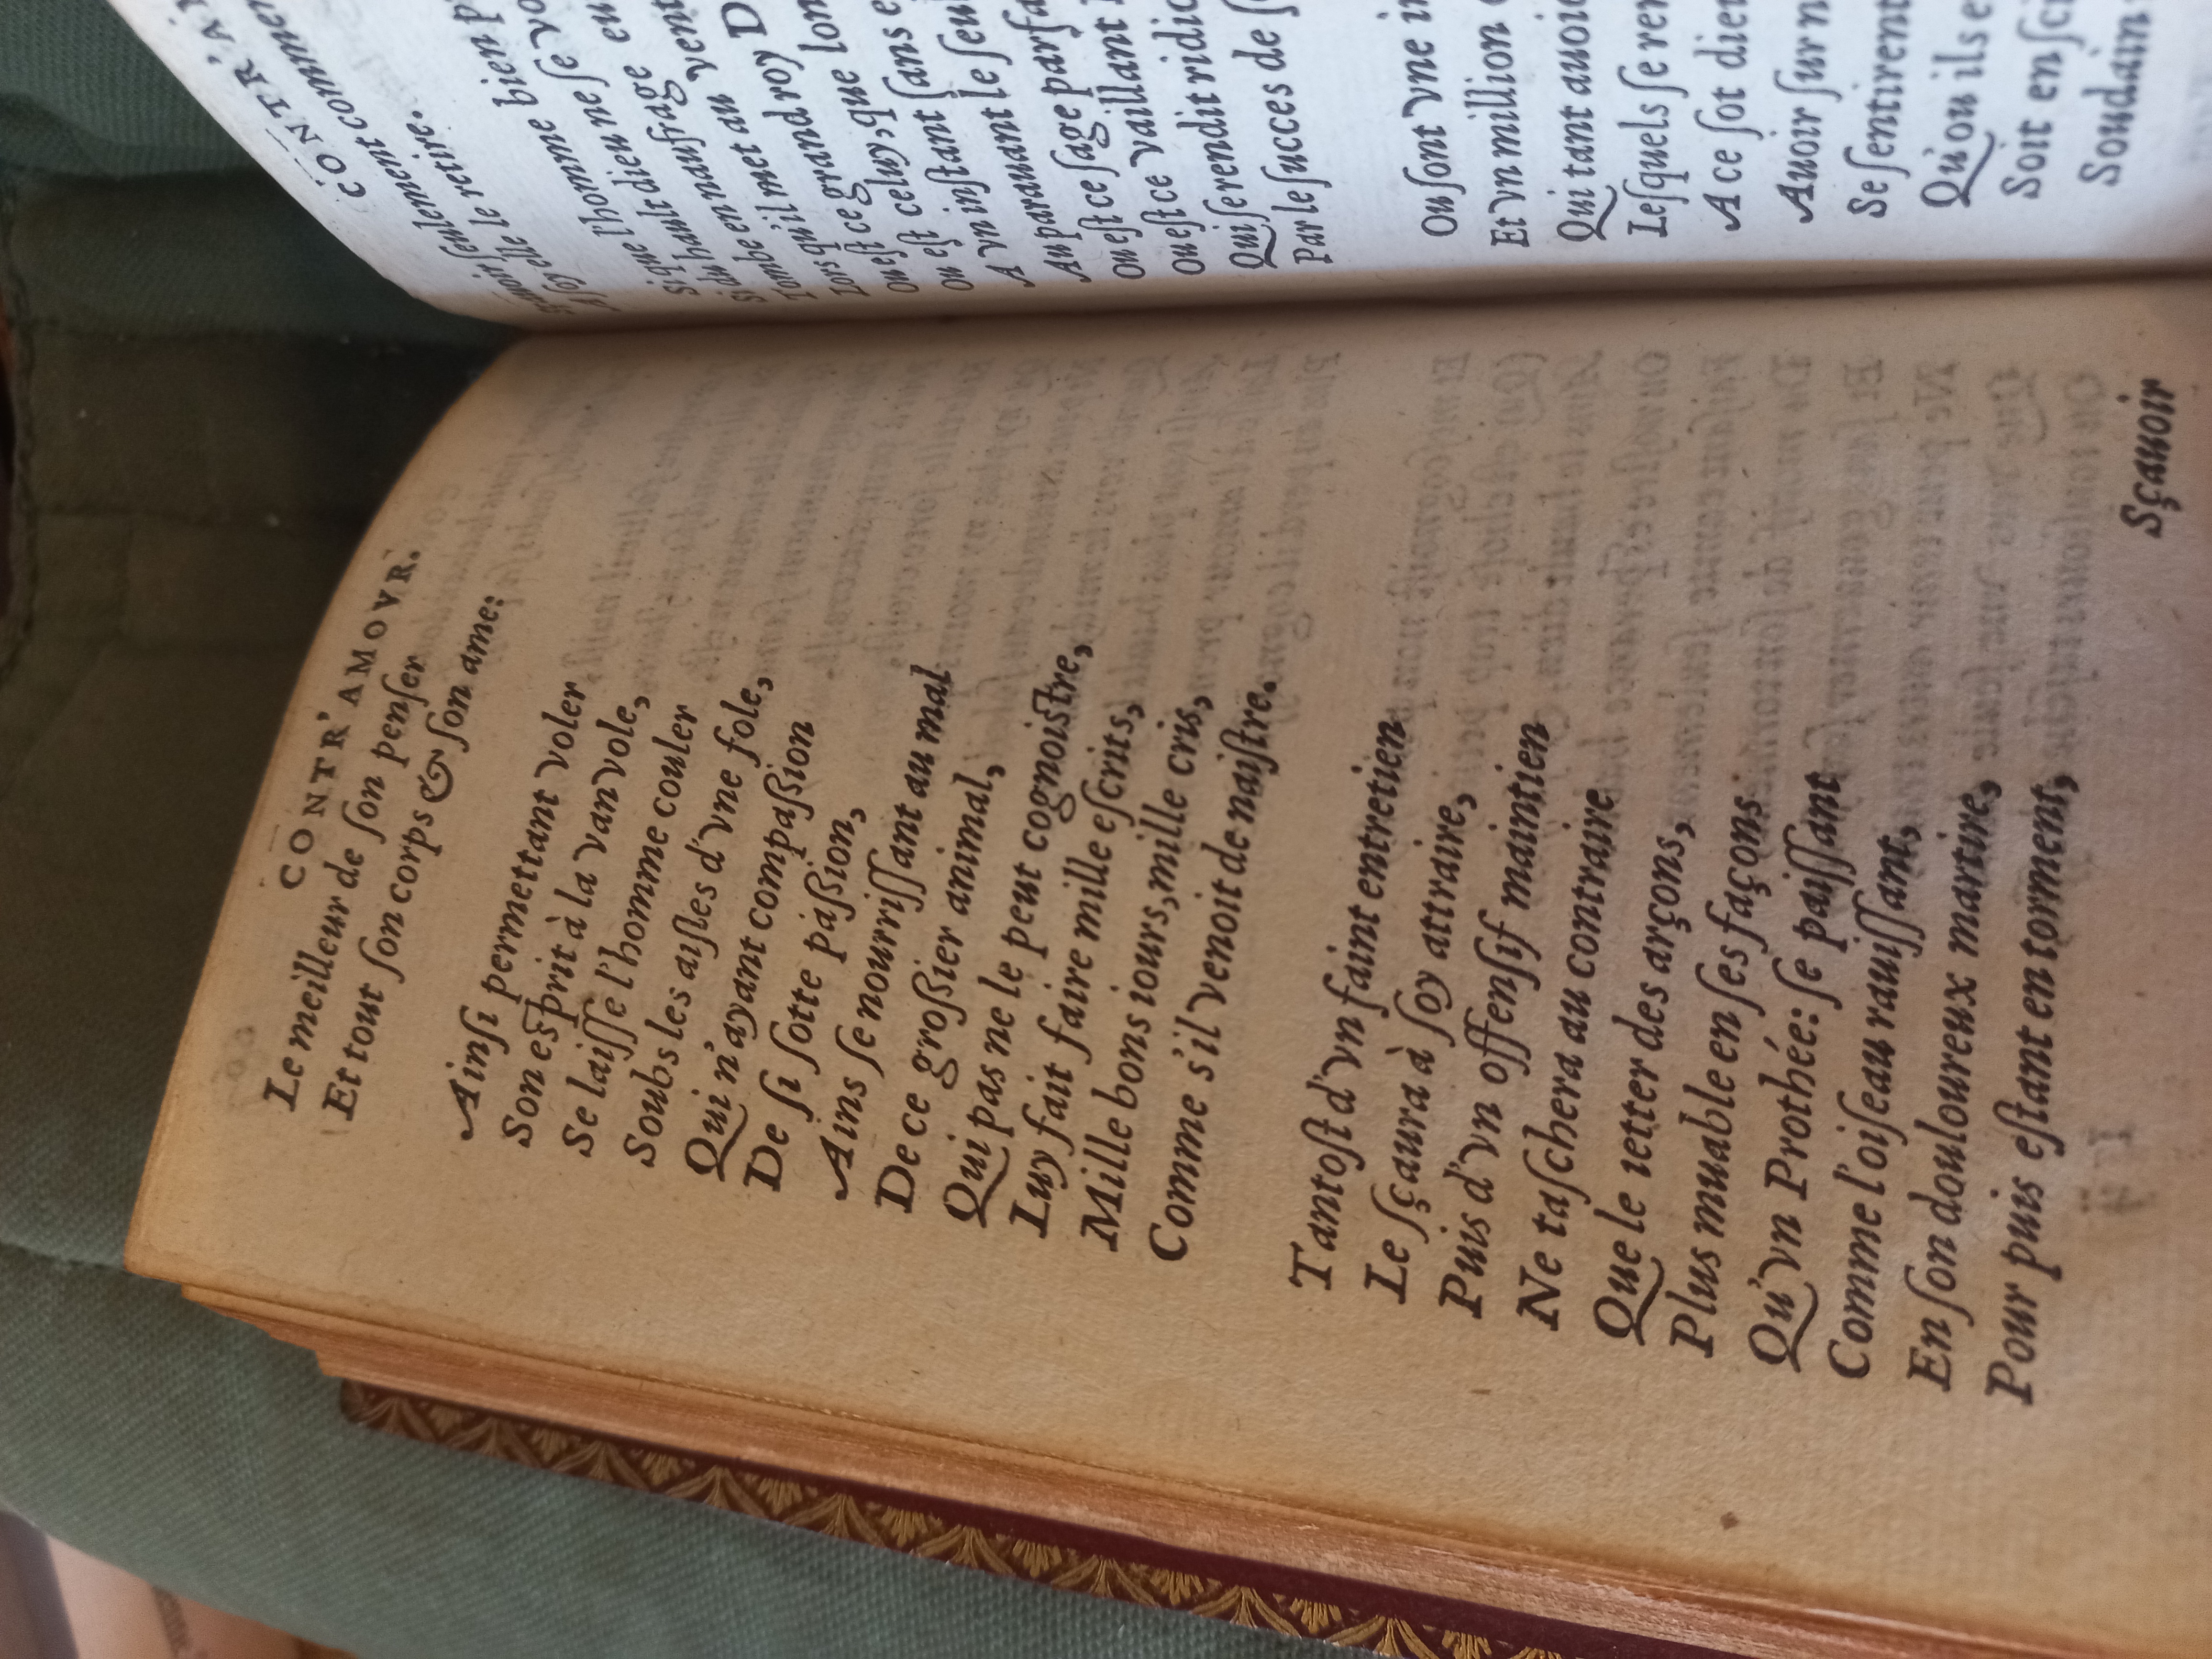 CONTR'AMOVR.
Le meilleur de ſon penſer
Et tout ſon corps & ſon ame:
Ainſi permettant voler
Son eſprit à la van vole,
Se laiſſe l'homme couler
Soubs les aiſles d'vne fole,
Qui n'ayant compaſsion
De ſi ſotte paſsion,
Ains ſe nourriſſant au mal
De ce groſsier animal,
Qui pas ne le peut cognoiſtre,
Luy fait faire mille eſcrits,
Mille bons iours, mille cris,
Comme s'il venoit de naiſtre.
Tantoſt d'vn faint entretien
Le ſçaura à ſoy attraire,
Puis d'vn offenſif maintien
Ne taſchera au contraire
Que le ietter des arçons,
Plus muable en ſes façons
Qu'vn Prothée: ſe paiſſant
Comme l'oiſeau rauiſſant,
En ſon douloureux martire,
Pour puis eſtant en torment,
Sçauoir
CONTR'A
Sçauoir ſeulement commen
A ſoy elle le retire.
bien p
Si que l'homme ne ſe vo
Si du hault dieu ne ſe
Tombe en naufrage eu
Lors qu'il met au vent
Ou eſt ce grand roy D
Ou eſt celuy, que lon
A vn inſtant ſans e
Au parauant le ſeu
Ou eſt ce ſage parfa
Ou eſt ce vaillant
Qui ſe rendit ridic
Par le ſucces de ſ
Ou ſont vne in
Et vn million
Qui tant auoi
Leſquels ſe ren
A ce ſot dieu
Auoir ſur n
Se ſentirent
Qu'ou ils e
Soit en ſci
Soudain